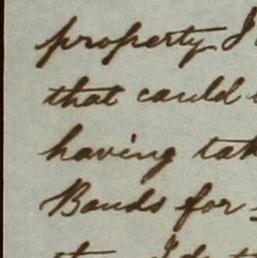 property I
that could
having tak
Bonds for
the